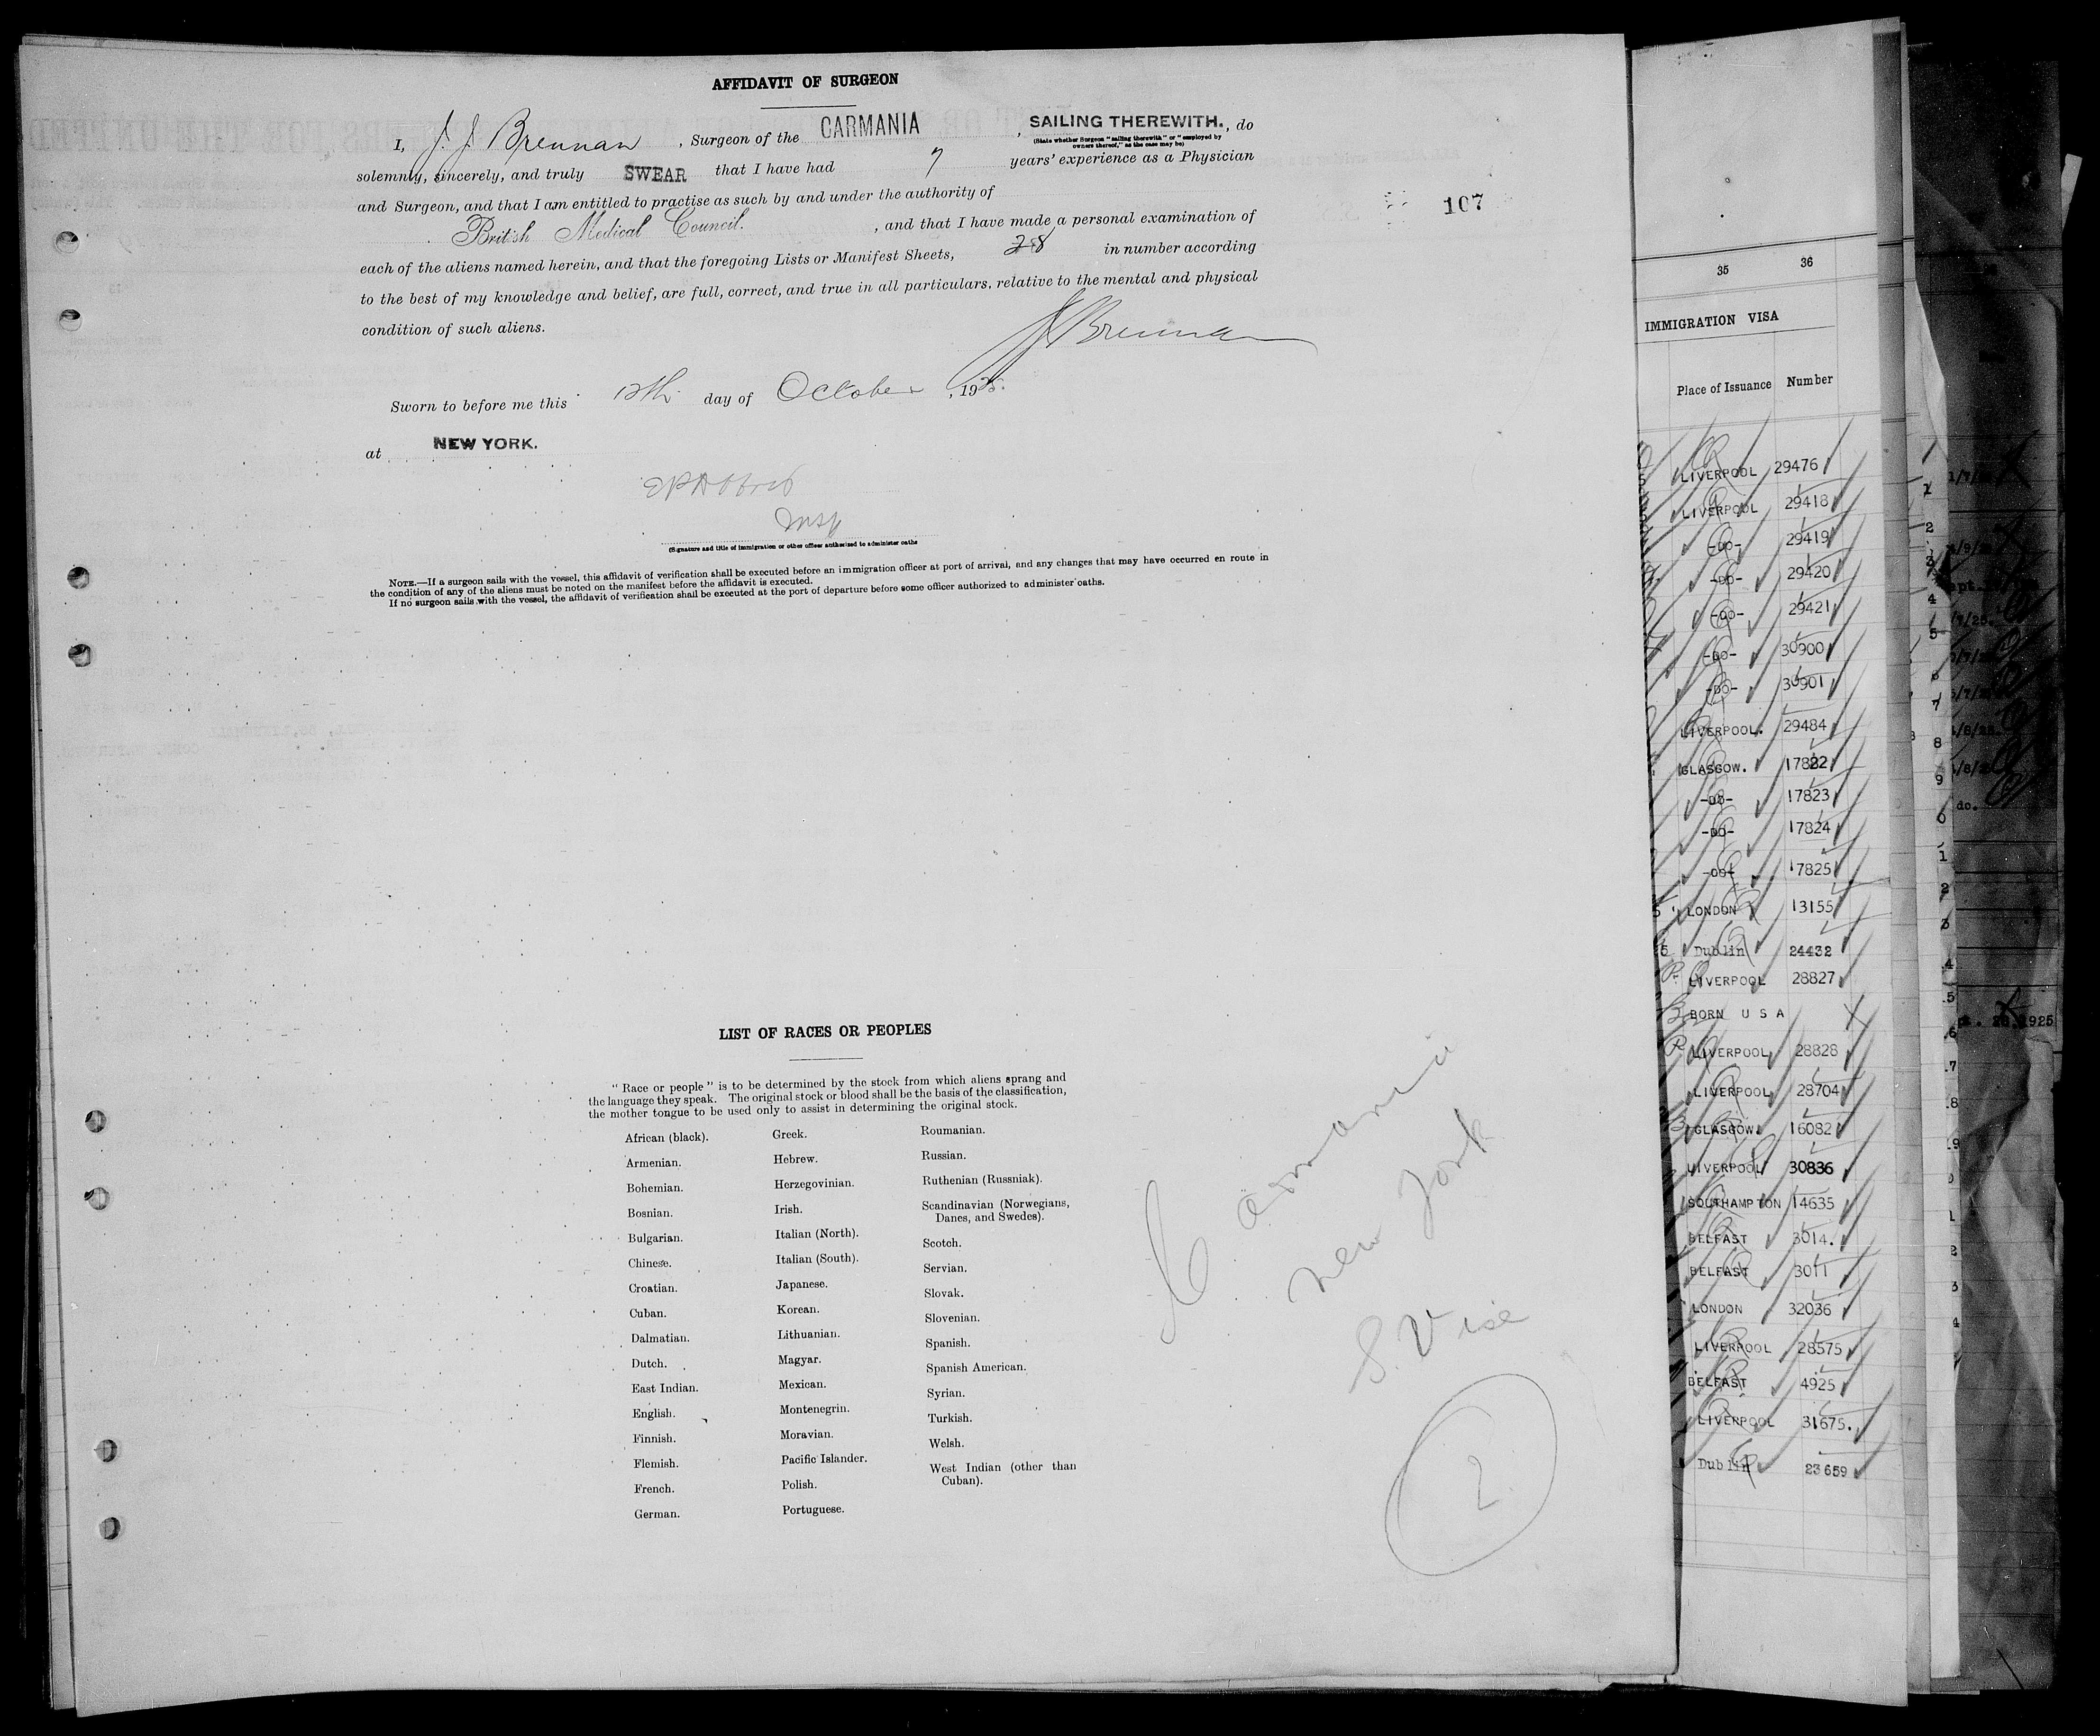 AFFIDAVIT OF SURGEON
I, J. J. Brennan, Surgeon of the CARMANIA, SAILING THEREWITH., do
(State whether Surgeon "sailing therewith" or "employed by
owners thereof," as the case may be)
solemnly, sincerely, and truly SWEAR that I have had 7 years' experience as a Physician
and Surgeon, and that I am entitled to practise as such by and under the authority of
British Medical Council. , and that I have made a personal examination of
each of the aliens named herein, and that the foregoing Lists or Manifest Sheets, 28 in number according
to the best of my knowledge and belief, are full, correct, and true in all particulars, relative to the mental and physical
condition of such aliens.
J J Brennan
Sworn to before me this 12th day of October, 1925.
at NEW YORK.
Insp
(Signature and title of immigration or other officer authorized to administer oaths
NOTE.—If a surgeon sails with the vessel, this affidavit of verification shall be executed before an immigration officer at port of arrival, and any changes that may have occurred en route in
the condition of any of the aliens must be noted on the manifest before the affidavit is executed.
If no surgeon sails with the vessel, the affidavit of verification shall be executed at the port of departure before some officer authorized to administer oaths.
107
LIST OF RACES OR PEOPLES
"Race or people" is to be determined by the stock from which aliens sprang and
the language they speak. The original stock or blood shall be the basis of the classification,
the mother tongue to be used only to assist in determining the original stock.
African (black).
Armenian.
Bohemian.
Bosnian.
Bulgarian.
Chinese.
Croatian.
Cuban.
Dalmatian.
Dutch.
East Indian.
English.
Finnish.
Flemish.
French.
German.
Greek.
Hebrew.
Herzegovinian.
Irish.
Italian (North).
Italian (South).
Japanese.
Korean.
Lithuanian.
Magyar.
Mexican.
Montenegrin.
Moravian.
Pacific Islander.
Polish.
Portuguese.
Roumanian.
Russian.
Ruthenian (Russniak).
Scandinavian (Norwegians,
Danes, and Swedes).
Scotch.
Servian.
Slovak.
Slovenian.
Spanish.
Spanish American.
Syrian.
Turkish.
Welsh.
West Indian (other than
Cuban).
Carmania
New York
S. Vise
2
35 36
IMMIGRATION VISA
Place of Issuance Number
LIVERPOOL 29476
LIVERPOOL 29418
-DO- 29419
-DO- 29420
-DO- 29421
-DO- 30900
-DO- 30901
LIVERPOOL. 29484
GLASGOW. 17822
-DO- 17823
-DO- 17824
-DO- 17825
LONDON 13155
Dublin 24432
LIVERPOOL 28827
BORN U S A
LIVERPOOL 28828
LIVERPOOL 28704
GLASGOW. 16082
LIVERPOOL 30836
SOUTHAMPTON 14635
BELFAST 3014.
BELFAST 3011
LONDON 32036
LIVERPOOL 28575
BELFAST 4925
LIVERPOOL 31675.
Dublin 23659